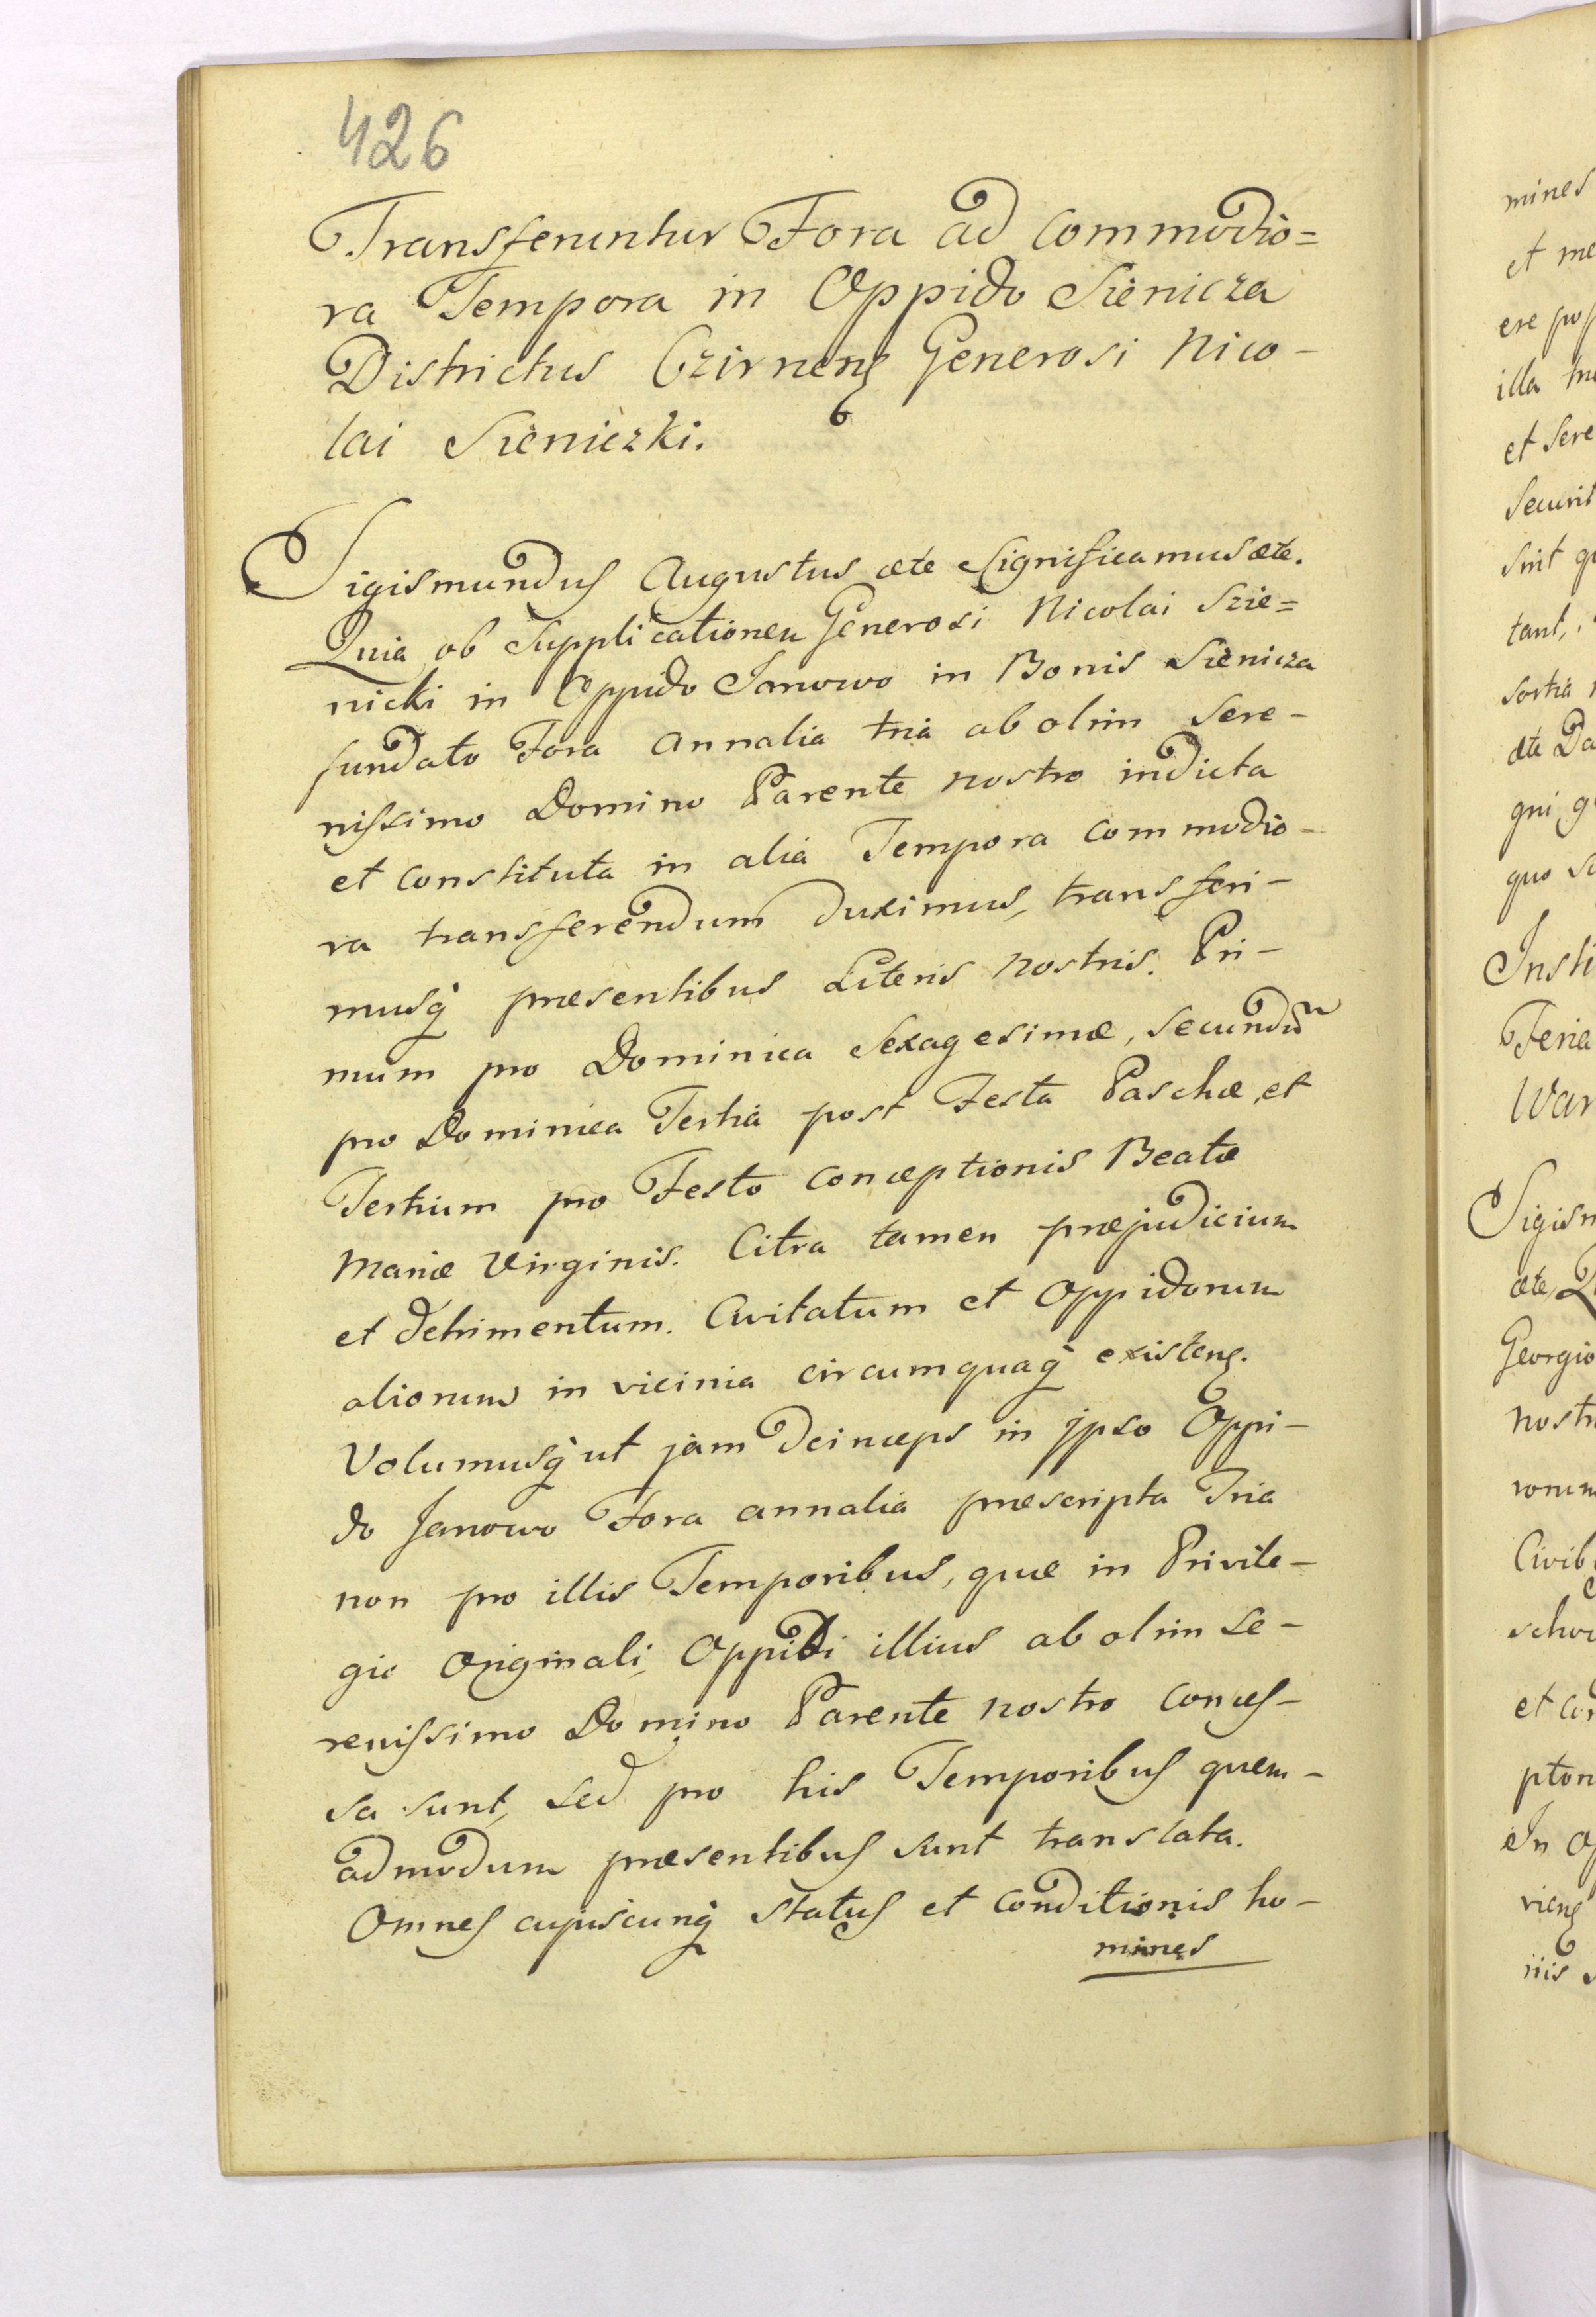 426
Transferuntur Fora ad Commodio=
ra Tempora in Oppido Sienicza
Districtus Czirnens Generosi Nico-
lai Sieniczki.
Sigismundus Augustus æte Significamus æte.
Quia ob Supplicationen Generosi Nicolai Szie=
nicki in Oppido Janowo in Bonis Sienicza
fundato Fora Annalia tria ab olim Sere-
nissimo Domino Parente nostro indicta
et Constituta in alia Tempora Commodio-
ra transferendum duximus, transferi-
musq præsentibus Literis nostris. Pri-
mum pro Dominica Sexagesimæ, Secundum
pro Dominica Tertia post Festa Paschæ, et
Tertium pro Festo Conceptionis Beatæ
Mariæ Virginis. Citra tamen præjudicium
et detrimentum. Civitatum et Oppidorum
aliorum in vicinia circumquaq existens.
Volumusq ut jam deinceps in jpso Oppi-
do Janowo Fora annalia præscripta Tria
non pro illis Temporibus, quæ in Privile-
gio Originali, Oppidi illius ab olim Se-
renissimo Domino Parente nostro Conces-
sa sunt, sed pro his Temporibus quem-
admodum præsentibus sunt translata.
Omnes cujuscunq status et Conditionis ho-
mines
mines
et me
ere pos
illa
et Sere
Securit
Sint
tant,
sortia
æte Da
qui
quo
Insti
Feria
War
Sigism
æte
Georgio
nostr
Civib
et
In
riis